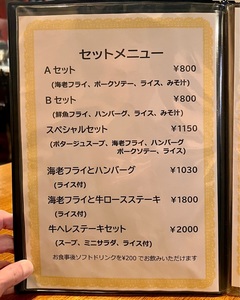 セットメニュー
Aセット ¥800
(海老フライ、ポークソテー、ライス、みそ汁)
Bセット ¥800
(鮮魚フライ、ハンバーグ、ライス、みそ汁)
スペシャルセット ¥1150
(ポタージュスープ、海老フライ、ハンバーグ
ポークソテー、ライス)
海老フライとハンバーグ ¥1030
(ライス付)
海老フライと牛ロースステーキ ¥1800
(ライス付)
牛ヘレステーキセット ¥2000
(スープ、ミニサラダ、ライス付)
お食事後ソフトドリンクを¥200 でお飲みいただけます